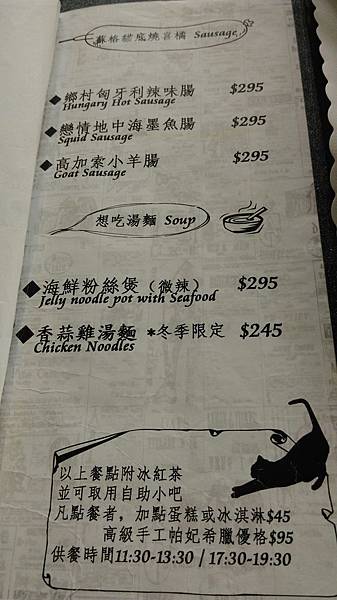 蘇格貓底燒喜橘 Sausage
◆鄉村匈牙利辣味腸 $295
Hungary Hot Sausage
◆戀情地中海墨魚腸 $295
Squid Sausage
◆高加索小羊腸 $295
Goat Sausage
想吃湯麵 Soup
◆海鮮粉絲煲(微辣) $295
Jelly noodle pot with Seafood
◆香蒜雞湯麵 *冬季限定 $245
Chicken Noodles
以上餐點附冰紅茶
並可取用自助小吧
凡點餐者,加點蛋糕或冰淇淋$45
高級手工帕妃希臘優格$95
供餐時間11:30-13:30 / 17:30-19:30